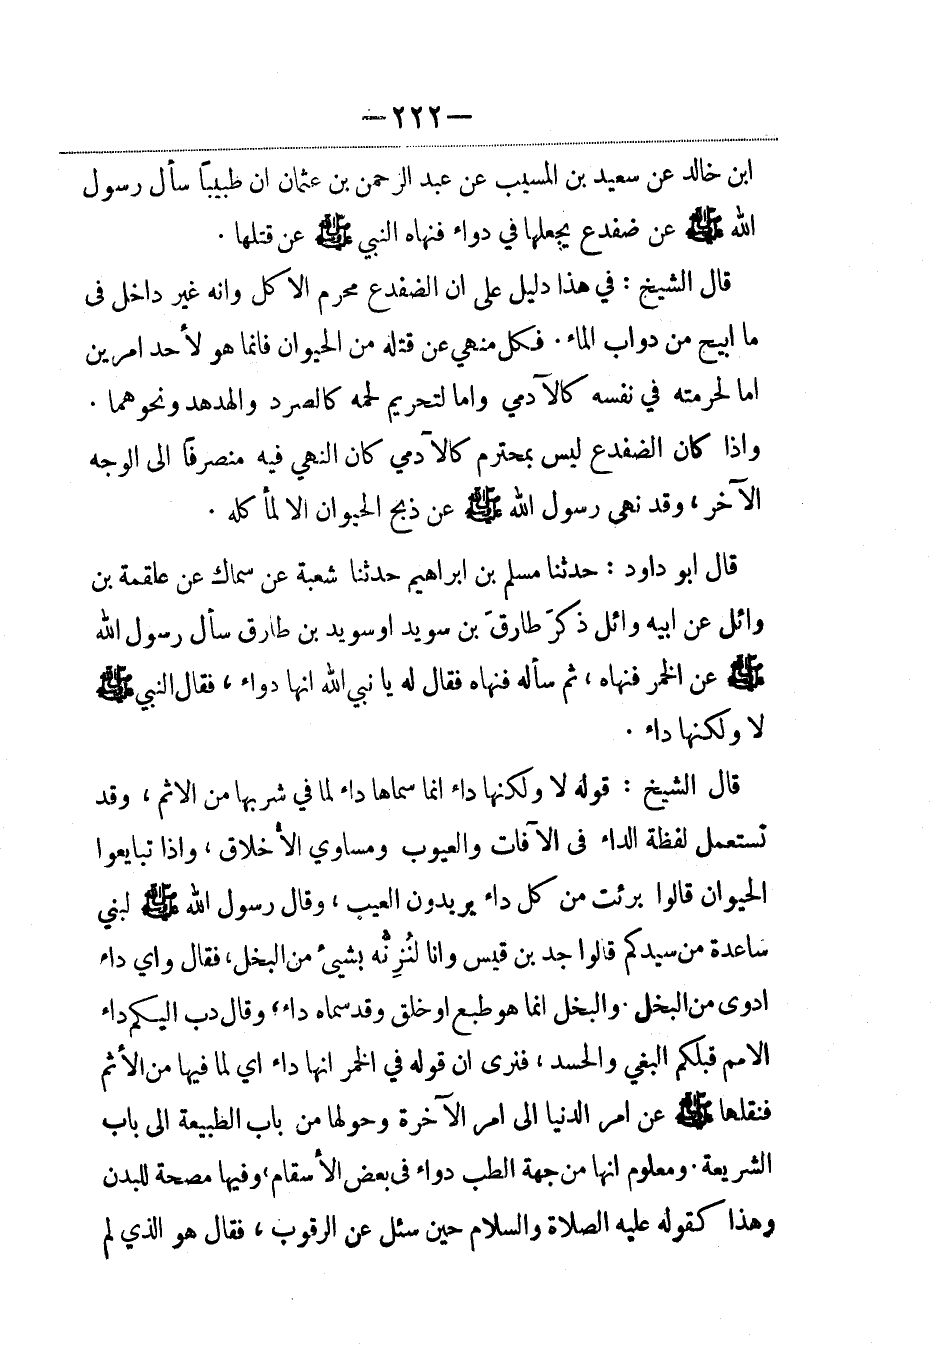 —٢٢٢—
ابن خالد عن سعيد بن المسيب عن عبد الرحمن بن عثمان ان طبيباً سأل رسول
الله ﷺ عن ضفدع يجعلها في دواء فنهاه النبي ﷺ عن قتلها .
قال الشيخ : في هذا دليل على ان الضفدع محرم الاكل وانه غير داخل فى
ما ابيح من دواب الماء . فكل منهي عن قتله من الحيوان فانما هو لأحد امرين
اما لحرمته في نفسه كالآدمي واما لتحريم لحمه كالصرد والهدهد ونحوهما .
واذا كان الضفدع ليس بمحترم كالآدمي كان النهي فيه منصرفاً الى الوجه
الآخر ، وقد نهى رسول الله ﷺ عن ذبح الحيوان الا لمأكله .
قال ابو داود : حدثنا مسلم بن ابراهيم حدثنا شعبة عن سماك عن علقمة بن
وائل عن ابيه وائل ذكرَ طارقَ بن سويد او سويد بن طارق سأل رسول الله
ﷺ عن الخمر فنهاه ، ثم سأله فنهاه فقال له يا نبي الله انها دواء ، فقال النبي ﷺ
لا ولكنها داء .
قال الشيخ : قوله لا ولكنها داء انما سماها داء لما في شربها من الاثم ، وقد
تستعمل لفظة الداء فى الآفات والعيوب ومساوي الأخلاق ، واذا تبايعوا
الحيوان قالوا برئت من كل داء يريدون العيب ، وقال رسول الله ﷺ لبني
ساعدة من سيدكم قالوا جد بن قيس وانا لنُزِنُّه بشيئ من البخل، فقال واي داء
ادوى من البخل . والبخل انما هو طبع او خلق وقد سماه داء ؛ وقال دب اليكم داء
الامم قبلكم البغي والحسد ، فنرى ان قوله في الخمر انها داء اي لما فيها من الأثم
فنقلها ﷺ عن امر الدنيا الى امر الآخرة وحولها من باب الطبيعة الى باب
الشريعة . ومعلوم انها من جهة الطب دواء فى بعض الأسقام ؛ وفيها مصحة للبدن
وهذا كقوله عليه الصلاة والسلام حين سئل عن الرقوب ، فقال هو الذي لم